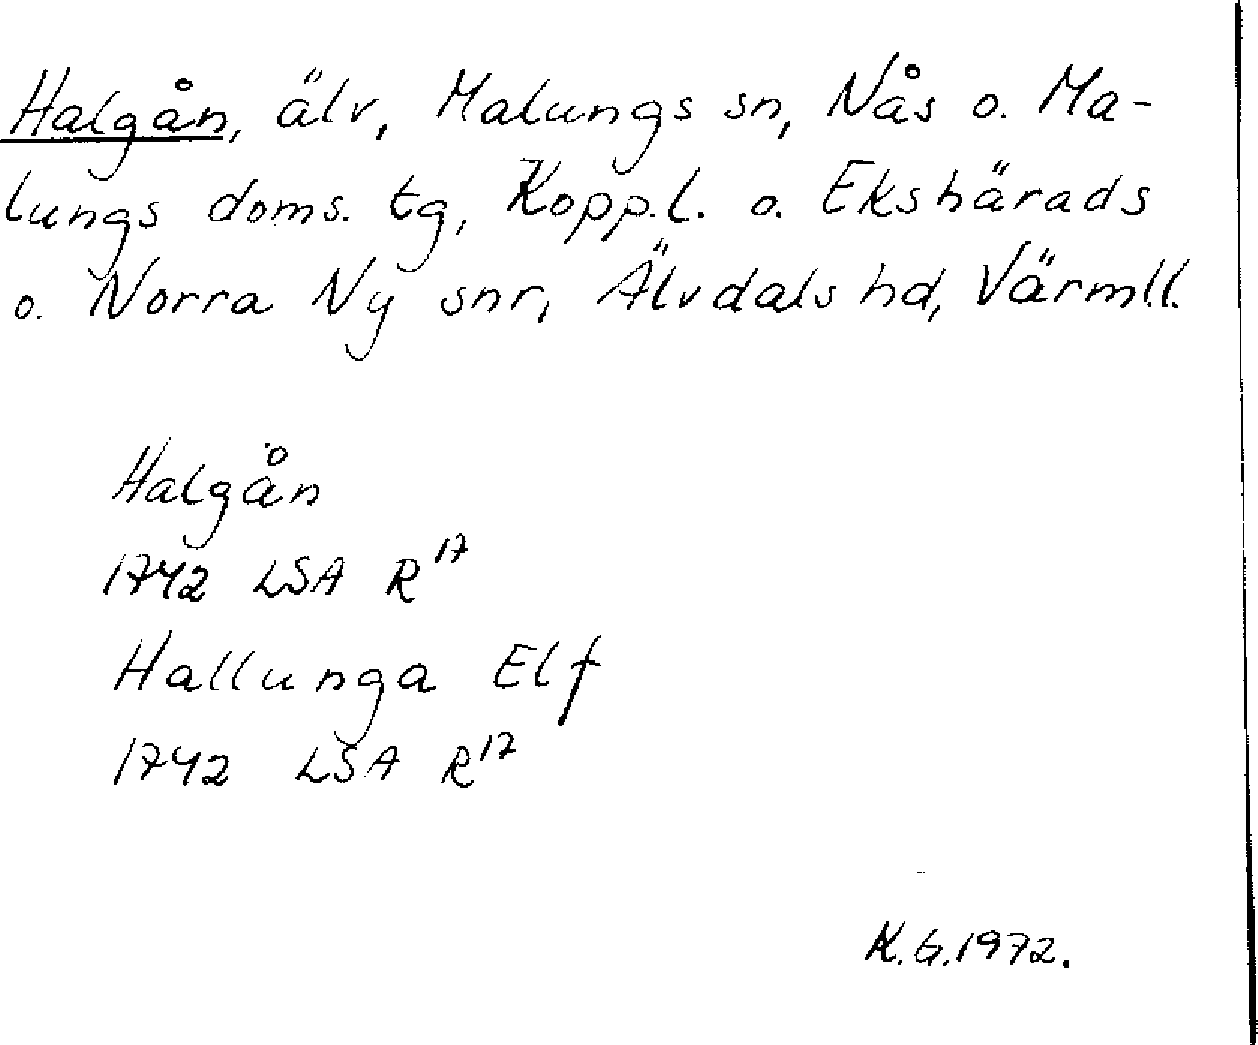 Halgån, älv, Malungs sn, Nås o. Ma-
lungs doms. tg, Kopp.l. o. Ekshärads
o. Norra Ny snr, Älvdals hd, Värmll.
Halgån
1742 LSA R¹⁷
Hallunga Elf
1742 LSA R¹⁷
K.G.1972.